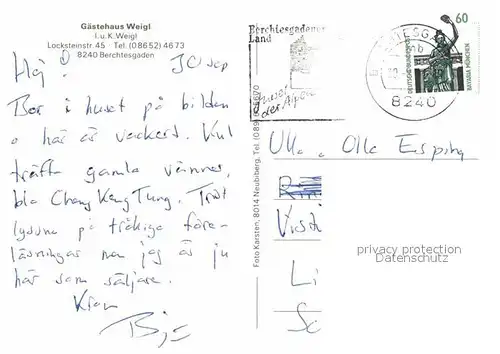 Gästehaus Weigl
I. u. K. Weigl
Locksteinstr. 45 · Tel. (0 86 52) 46 73
8240 Berchtesgaden
Hej! 30 sep
Bor i huset på bilden
o här är vackert. Kul
träffa gamla vänner,
bla Chang Keng Tung. Trist
lyssna på tråkiga före-
läsningar men jag är ju
här som säljare.
Kram
Foto Karsten, 8014 Neubiberg, Tel. (089)
Berchtesgadener
Land
der Alpen
8240
60
DEUTSCHE BUNDESPOST
BAVARIA MÜNCHEN
Ulla o Olle Esping
Li
privacy protection
Datenschutz